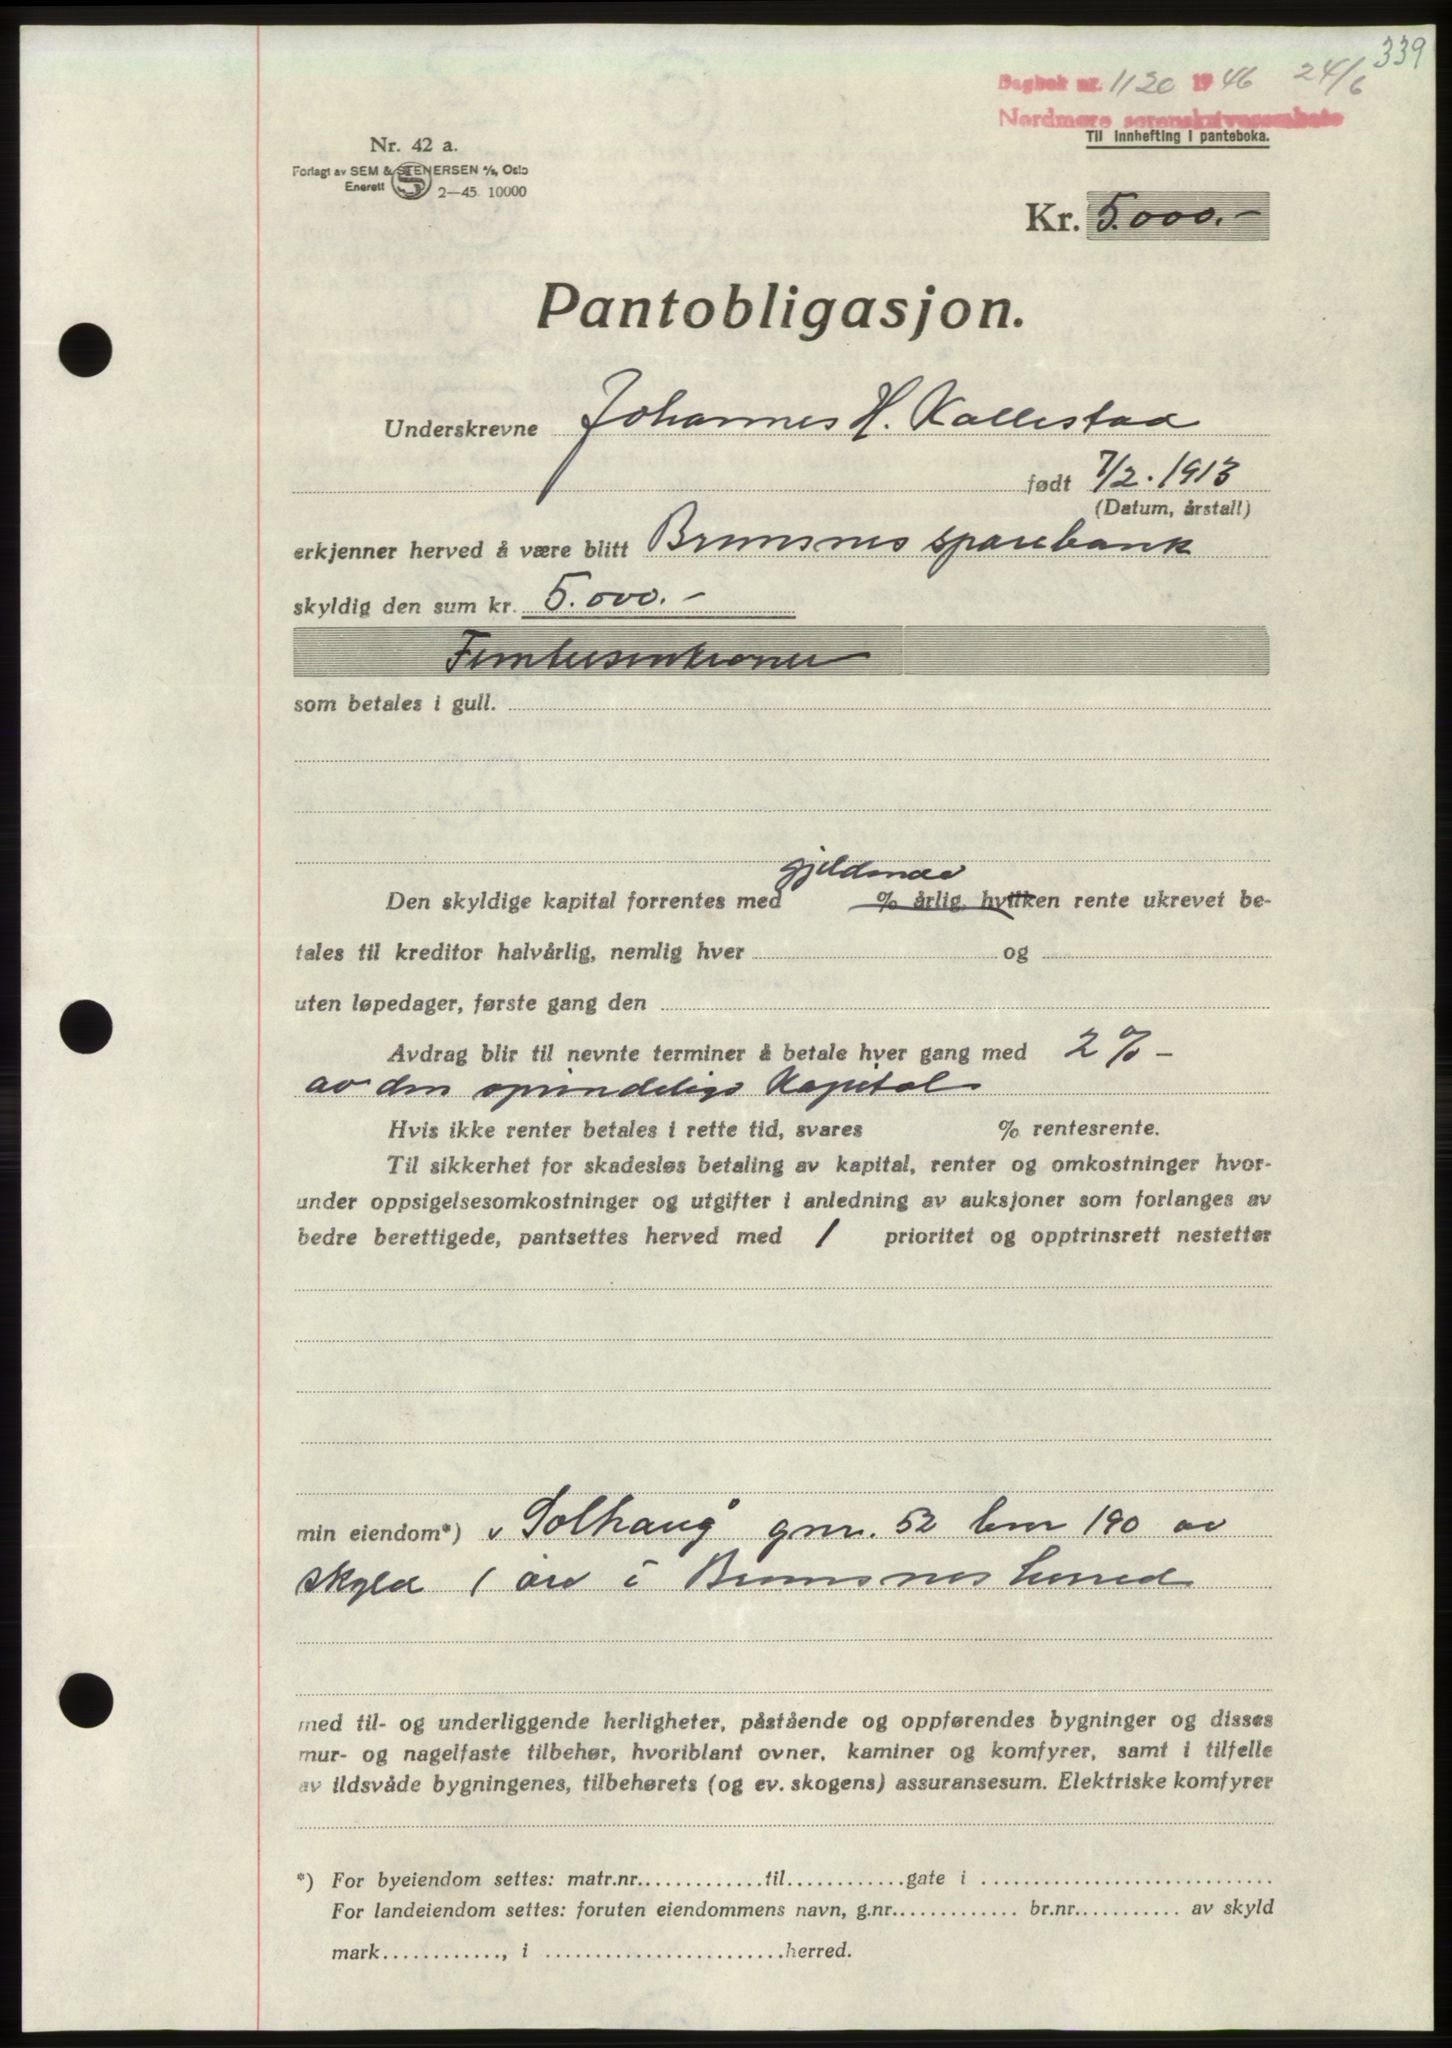 339
Dagbok nr. 1120 1946 24/6
Nordmøre sorenskriverembete
Til innhefting i panteboka.
Nr. 42 a.
Forlagt av SEM & STENERSEN A/S, Oslo
Enerett 2—45. 10000
Kr. 5.000.-
Pantobligasjon.
Underskrevne Johannes H. Kallestad
født 7/2. 1913
(Datum, årstall)
erkjenner herved å være blitt Bremsnes sparebank
skyldig den sum kr. 5.000.-
Femtusenkroner
som betales i gull.
gjeldende
Den skyldige kapital forrentes med % årlig, hvilken rente ukrevet be-
tales til kreditor halvårlig, nemlig hver og
uten løpedager, første gang den
Avdrag blir til nevnte terminer å betale hver gang med 2 % -
av den oprindelige Kapital
Hvis ikke renter betales i rette tid, svares % rentesrente.
Til sikkerhet for skadesløs betaling av kapital, renter og omkostninger hvor-
under oppsigelsesomkostninger og utgifter i anledning av auksjoner som forlanges av
bedre berettigede, pantsettes herved med 1 prioritet og opptrinsrett nestetter
min eiendom*) "Solhaug" gnr. 52 bnr 190 av
skyld 1 øre i Bremsnes herred
med til- og underliggende herligheter, påstående og oppførendes bygninger og disses
mur- og nagelfaste tilbehør, hvoriblant ovner, kaminer og komfyrer, samt i tilfelle
av ildsvåde bygningenes, tilbehørets (og ev. skogens) assuransesum. Elektriske komfyrer
*) For byeiendom settes: matr.nr.............til............gate i ............................
For landeiendom settes: foruten eiendommens navn, g.nr............. br.nr........... av skyld
mark............, i ........................herred.